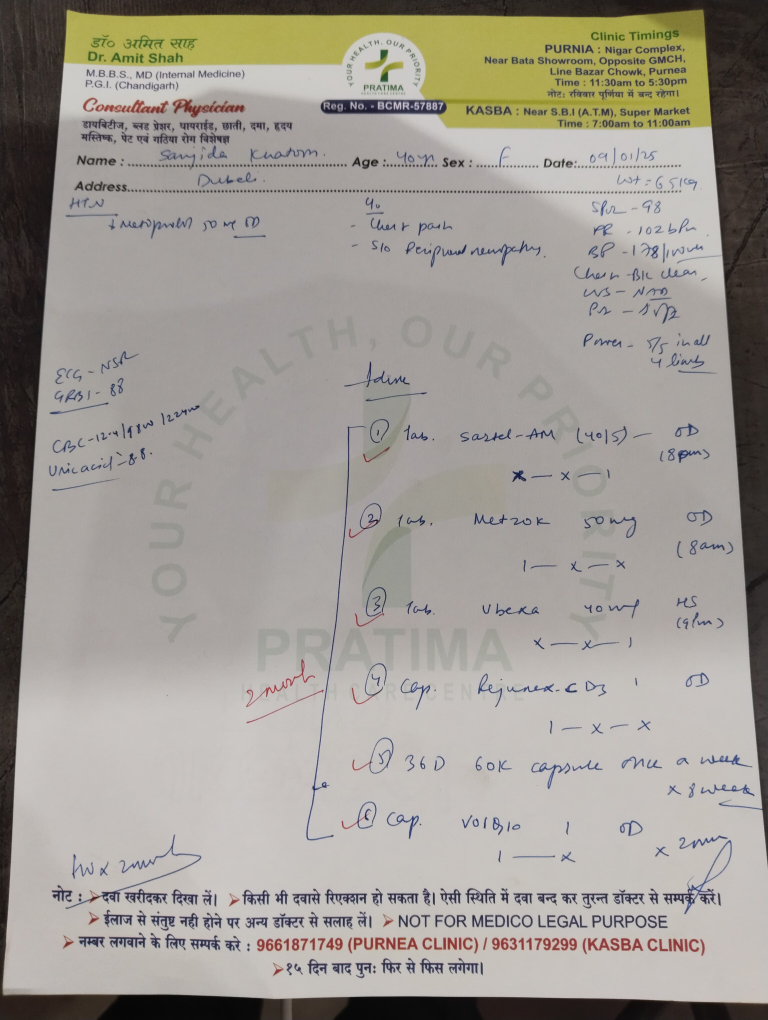 डॉ० अमित साह
Dr. Amit Shah
M.B.B.S., MD (Internal Medicine)
P.G.I. (Chandigarh)
Consultant Physician
डायबिटीज, ब्लड प्रेशर, थायराईड, छाती, दमा, हृदय
मस्तिष्क, पेट एवं गठिया रोग विशेषज्ञ
YOUR HEALTH, OUR PRIORITY
PRATIMA
HEALTH CARE CENTRE
Reg. No. - BCMR-57887
Clinic Timings
PURNIA : Nigar Complex,
Near Bata Showroom, Opposite GMCH,
Line Bazar Chowk, Purnea
Time : 11:30am to 5:30pm
नोट: रविवार पूर्णिया में बन्द रहेगा।
KASBA : Near S.B.I (A.T.M), Super Market
Time : 7:00am to 11:00am
Name : Sanjida Khatom. Age : 40yr Sex : F Date: 09/01/25
Address
Wt = 65kg
HTN
Metoprolol 50 mg OD
- Chest pain
- S/o Peripheral neuropathy.
SPO2 - 98
PR - 102 bpm
BP - 178/
Chest - B/L clear
- NAD
P/A - Soft
Power - 5/5 in all
4 limbs
ECG - NSR
GRBS - 88
CBC - 12.4/9800/
Uric acid - 8.8.
Advise
YOUR HEALTH, OUR PRIORITY
PRATIMA
HEALTH CARE CENTRE
① Tab. Sartel-AM (40/5) - OD
(8pm)
x - x - 1
② Tab. Metzok 50 mg OD
(8am)
1 - x - x
③ Tab. 40 mg HS
(9pm)
x - x - 1
④ Cap. Rejunex-CD3 1 OD
1 - x - x
⑤ 36D 60K capsule once a week
x 8 week
⑥ Cap. 1 OD
1 - x
x 2
2 month
x 2 month
नोट : ➢दवा खरीदकर दिखा लें। ➢किसी भी दवासे रिएक्शन हो सकता है। ऐसी स्थिति में दवा बन्द कर तुरन्त डॉक्टर से सम्पर्क करें।
➢ईलाज से संतुष्ट नही होने पर अन्य डॉक्टर से सलाह लें। ➢NOT FOR MEDICO LEGAL PURPOSE
➢नम्बर लगवाने के लिए सम्पर्क करे : 9661871749 (PURNEA CLINIC) / 9631179299 (KASBA CLINIC)
➢१५ दिन बाद पुनः फिर से फिस लगेगा।